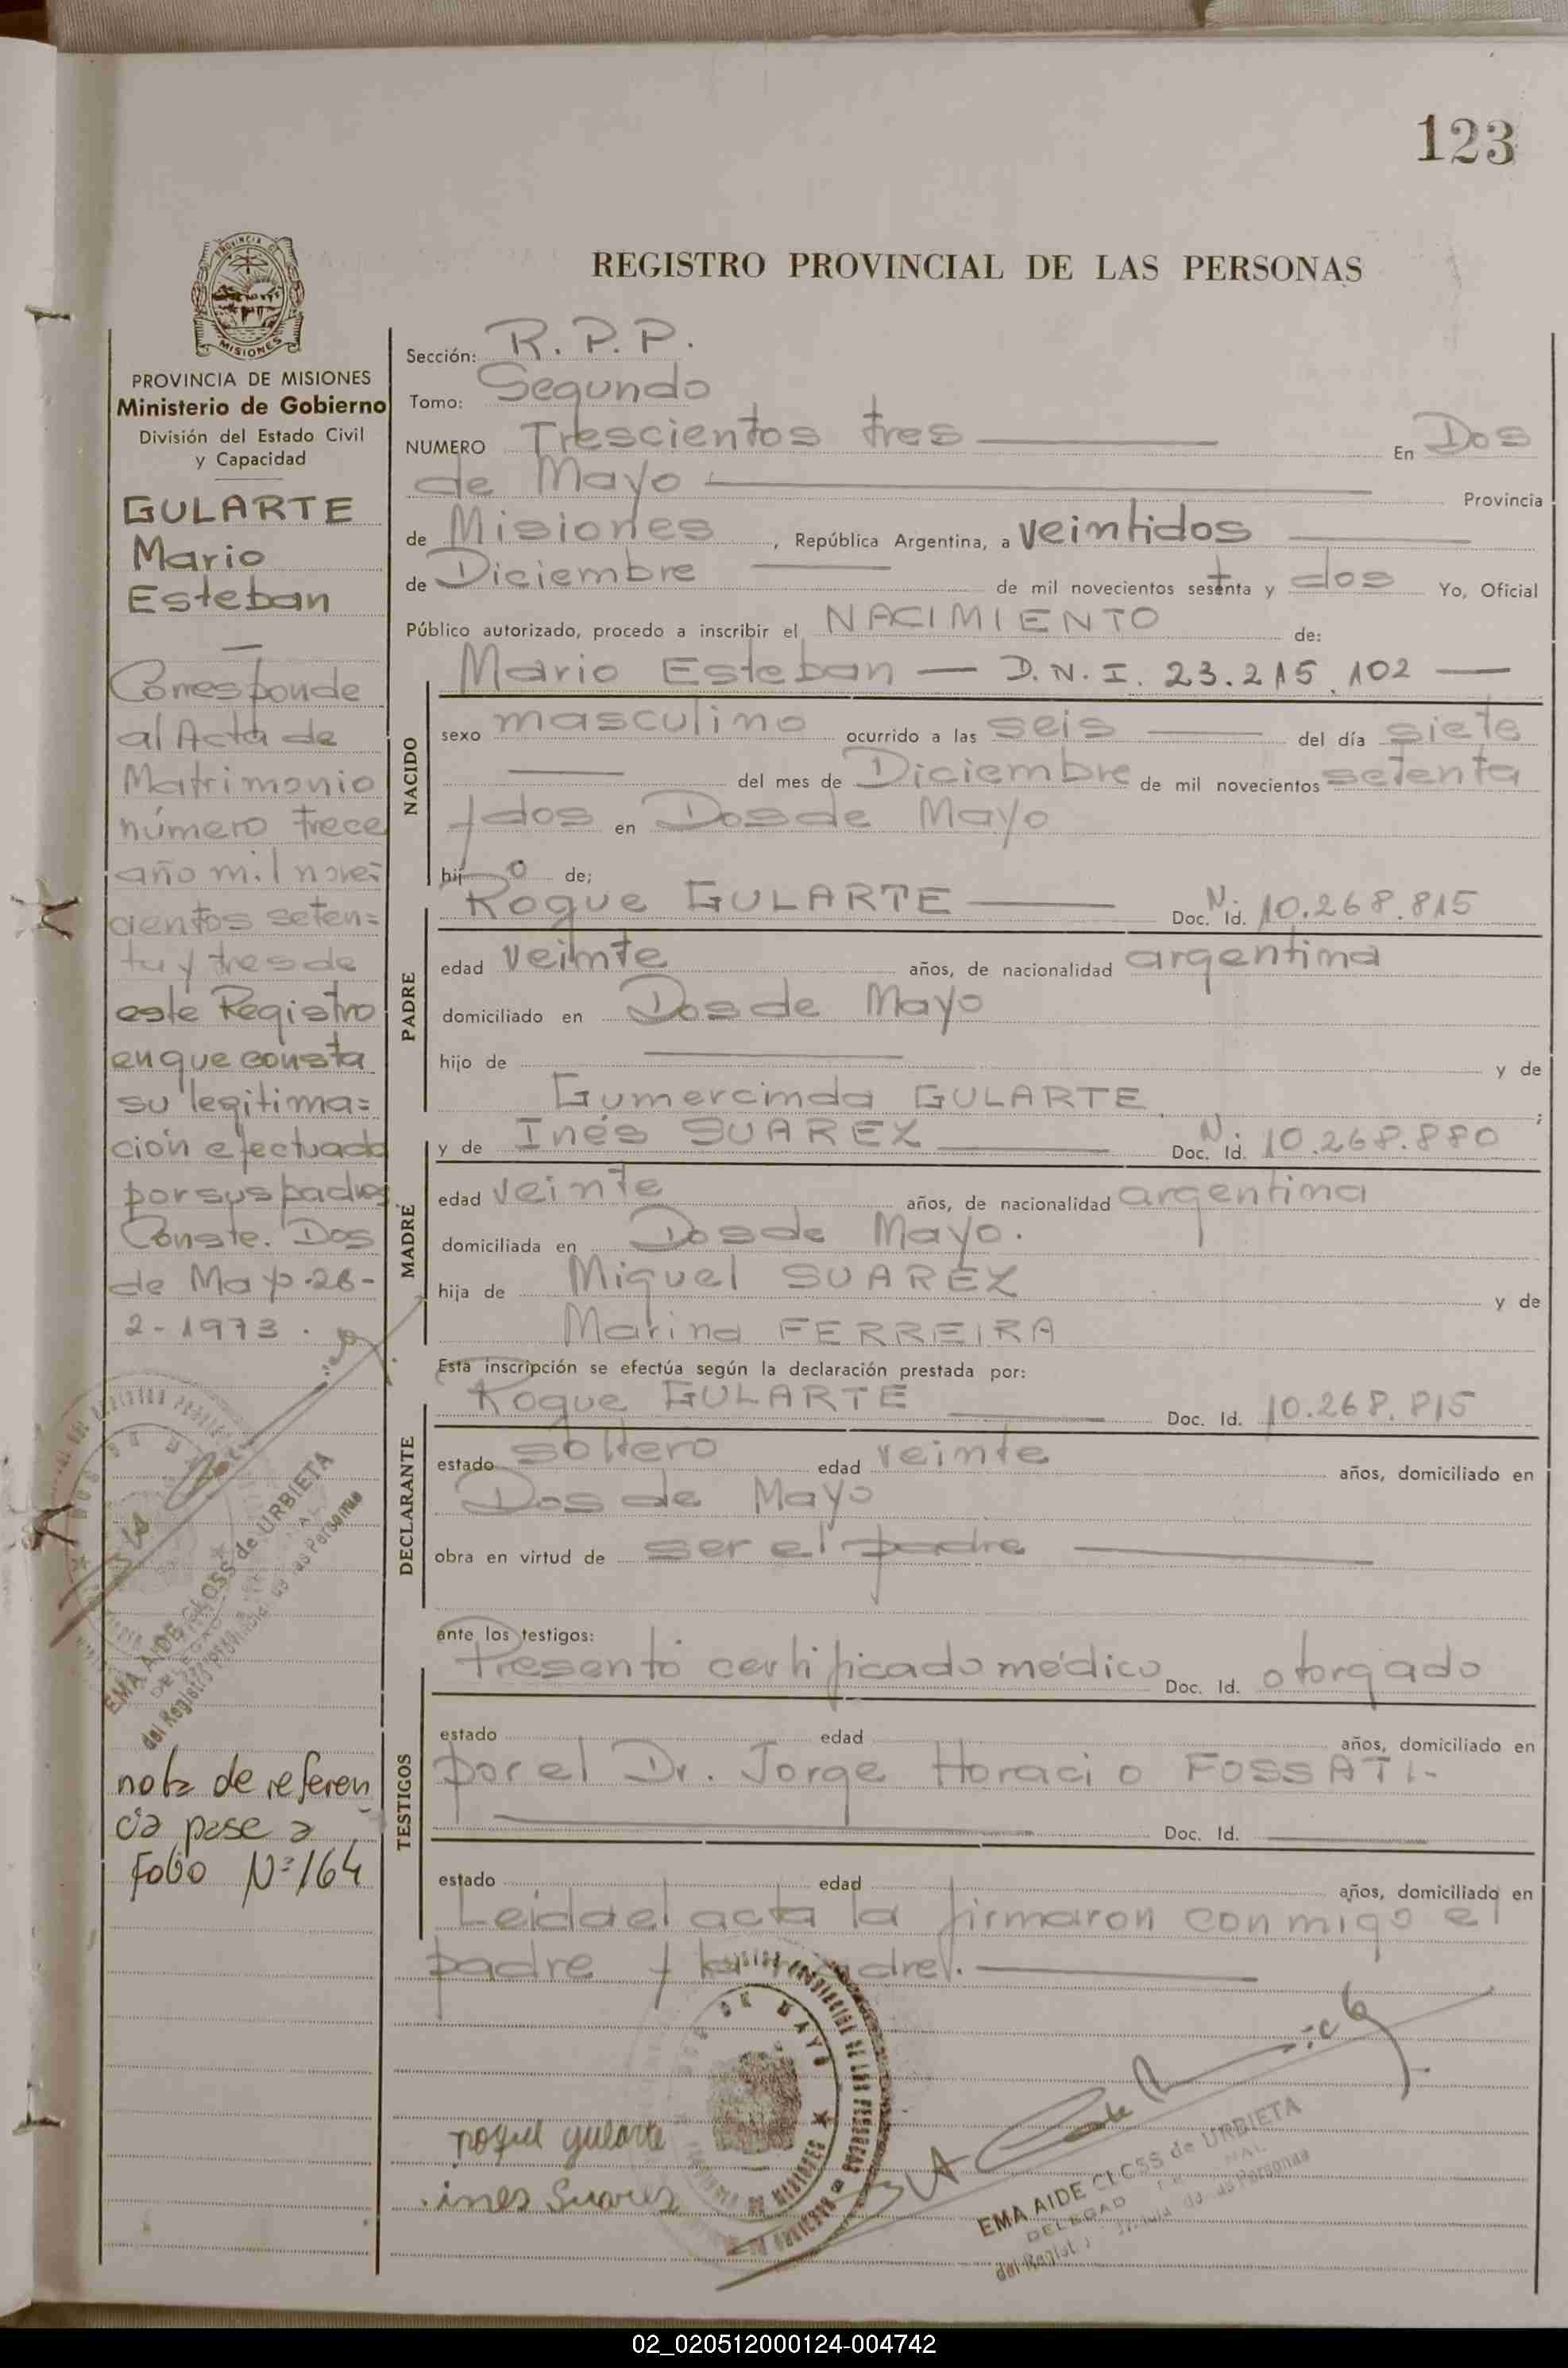 123
PROVINCIA DE
MISIONES
REGISTRO PROVINCIAL DE LAS PERSONAS
PROVINCIA DE MISIONES
Ministerio de Gobierno
División del Estado Civil
y Capacidad
GULARTE
Mario
Esteban
Corresponde
al Acta de
Matrimonio
número trece
año mil nove=
cientos seten=
ta y tres de
este Registro
en que consta
su legitima=
ción efectuada
por sus padres
Conste. Dos
de Mayo-26-
2-1973.
EMA AIDE CLOSS de URBIETA
DELEGAD
del Registro Provincial de las Personas
nota de referen
cia pase a
Folio Nº 164
Sección: R.P.P.
Tomo: Segundo
NUMERO Trescientos tres En Dos
de Mayo Provincia
de Misiones, República Argentina, a veintidos
de Diciembre de mil novecientos setenta y dos Yo, Oficial
Público autorizado, procedo a inscribir el NACIMIENTO de:
Mario Esteban — D.N.I. 23.215.102 —
NACIDO
sexo masculino ocurrido a las seis del día siete
del mes de Diciembre de mil novecientos setenta
y dos en Dos de Mayo
hijo de;
Roque GULARTE Doc. Id. N: 10.268.815
PADRE
edad veinte años, de nacionalidad argentina
domiciliado en Dos de Mayo
hijo de y de
Gumercinda GULARTE ;
y de Inés SUAREZ Doc. Id. N: 10.268.880
MADRE
edad veinte años, de nacionalidad argentina
domiciliada en Dos de Mayo.
hija de Miguel SUAREZ y de
Marina FERREIRA
Esta inscripción se efectúa según la declaración prestada por:
Roque GULARTE Doc. Id. 10.268.815
DECLARANTE
estado soltero edad veinte años, domiciliado en
Dos de Mayo
obra en virtud de ser el padre
ante los testigos:
Presentó certificado médico Doc. Id. otorgado
TESTIGOS
estado edad años, domiciliado en
por el Dr. Jorge Horacio FOSSATI.-
Doc. Id.
estado edad años, domiciliado en
Leida el acta la firmaron conmigo el
padre y la madre.
DOS DE MAYO
MISIONES
roque gularte
ines Suarez
EMA AIDE CLOSS de URBIETA
DELEGAD
de las Personas
02_020512000124-004742